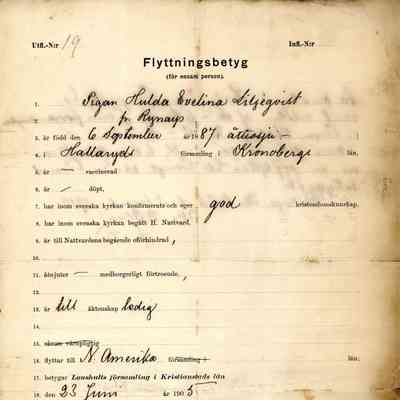 Utfl.-N:r 19 Infl.-N:r
Flyttningsbetyg
(för ensam person).
1. Pigan Hulda Evelina Liljeqvist
2. fr. Rynarp
3. är född den 6 September år 1887 åttiosju –
4. i Hallaryds församling i Kronobergs län,
5. är — vaccinerad
6. är — döpt,
7. har inom svenska kyrkan konfirmerats och eger god kristendomskunskap.
8. har inom svenska kyrkan begått H. Nattvard.
9. är till Nattvardens begående oförhindrad,
10.
11. åtnjuter — medborgerligt förtroende,
12.
13. är till äktenskap ledig
14.
15. såsom värnpligtig
16. flyttar till N. Amerika församling i län;
17. betygar Lönshults församling i Kristianstads län
18. den 23 Juni år 1905